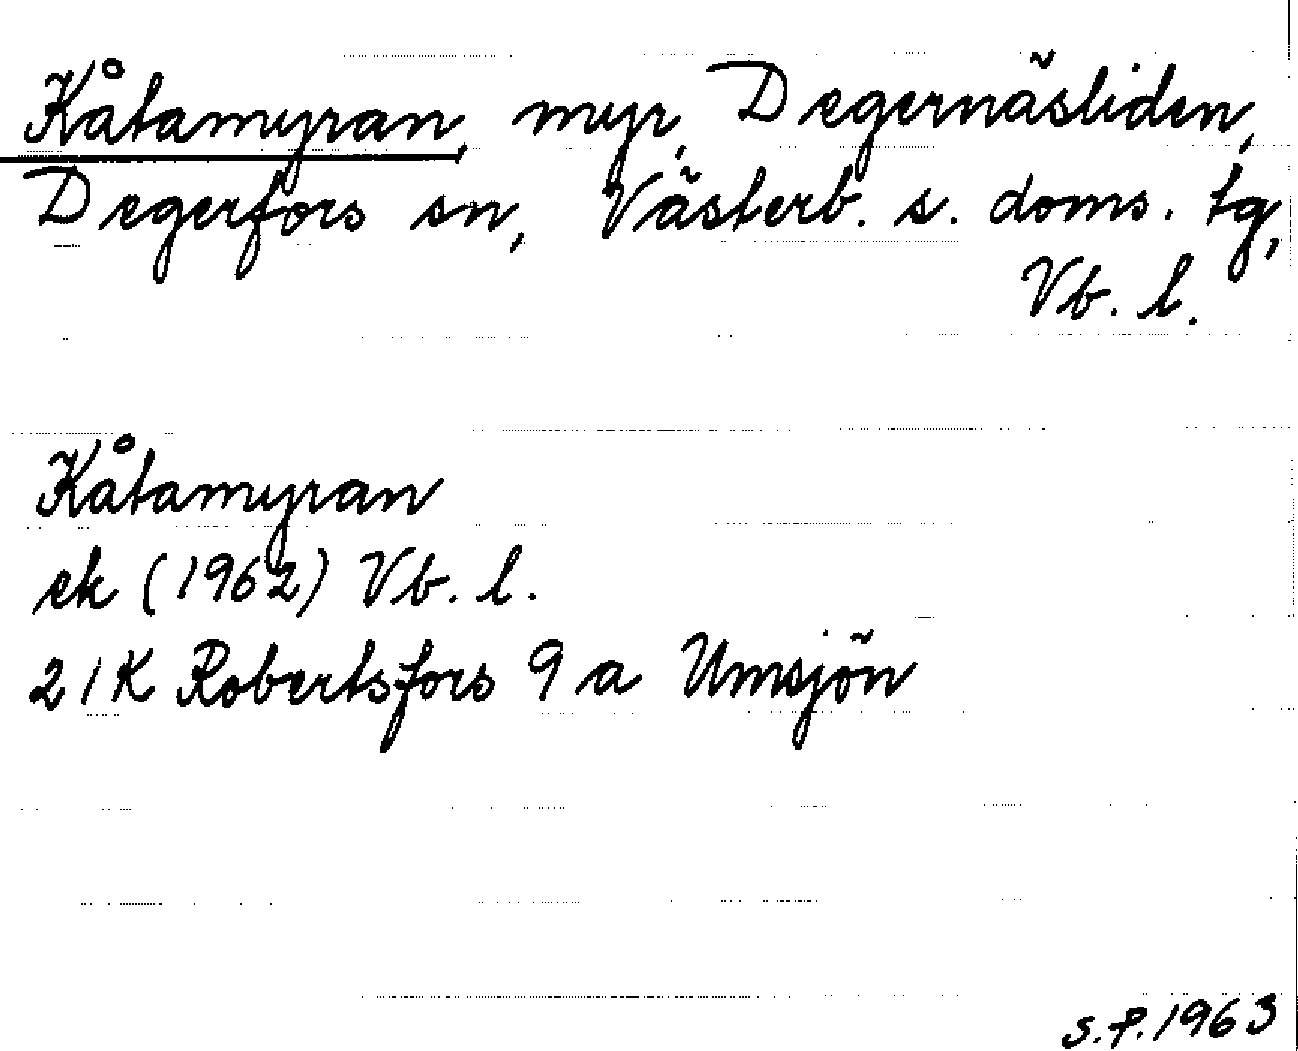 Kåtamyran, myr, Degernäsliden,
Degerfors sn, Västerb. s. doms. tg,
Vb. l.
Kåtamyran
ek (1962) Vb. l.
21K Robertsfors 9a Umsjön
S.P. 1963